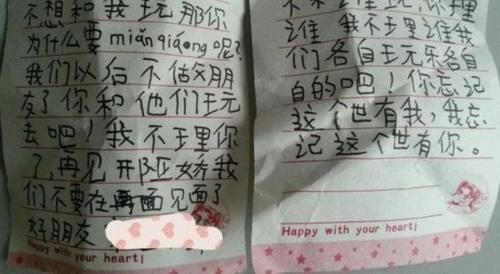 不想和我玩那你
为什么要miǎnqiǎng呢？
我们以后不做朋
友了你和他们玩
去吧！我不理你
了，再见
我
们不要在再面见面了
好朋友
Happy with your heart!
谁 我不理谁我
们各自玩乐各自
自的吧！你忘记
这个世有我，我忘
记这个世有你。
Happy with your heart!